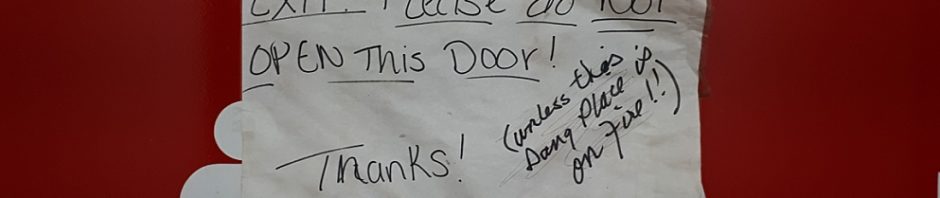 EXIT! Please do NOT
OPEN This Door!
Thanks!
(unless this is
Dang Place is
on Fire!!)